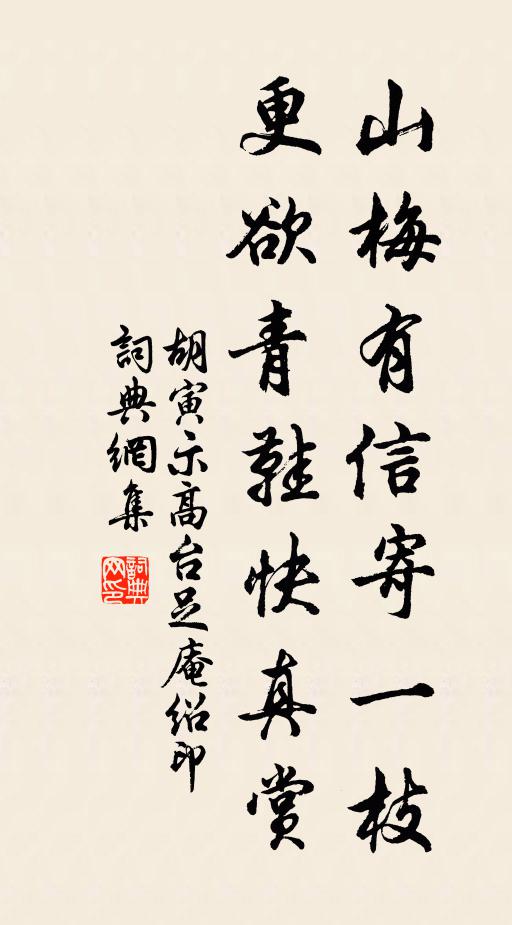 山梅有信寄一枝
更欲青鞋快真賞
胡寅示高台足庵紹印
詞典網集
詞典網印